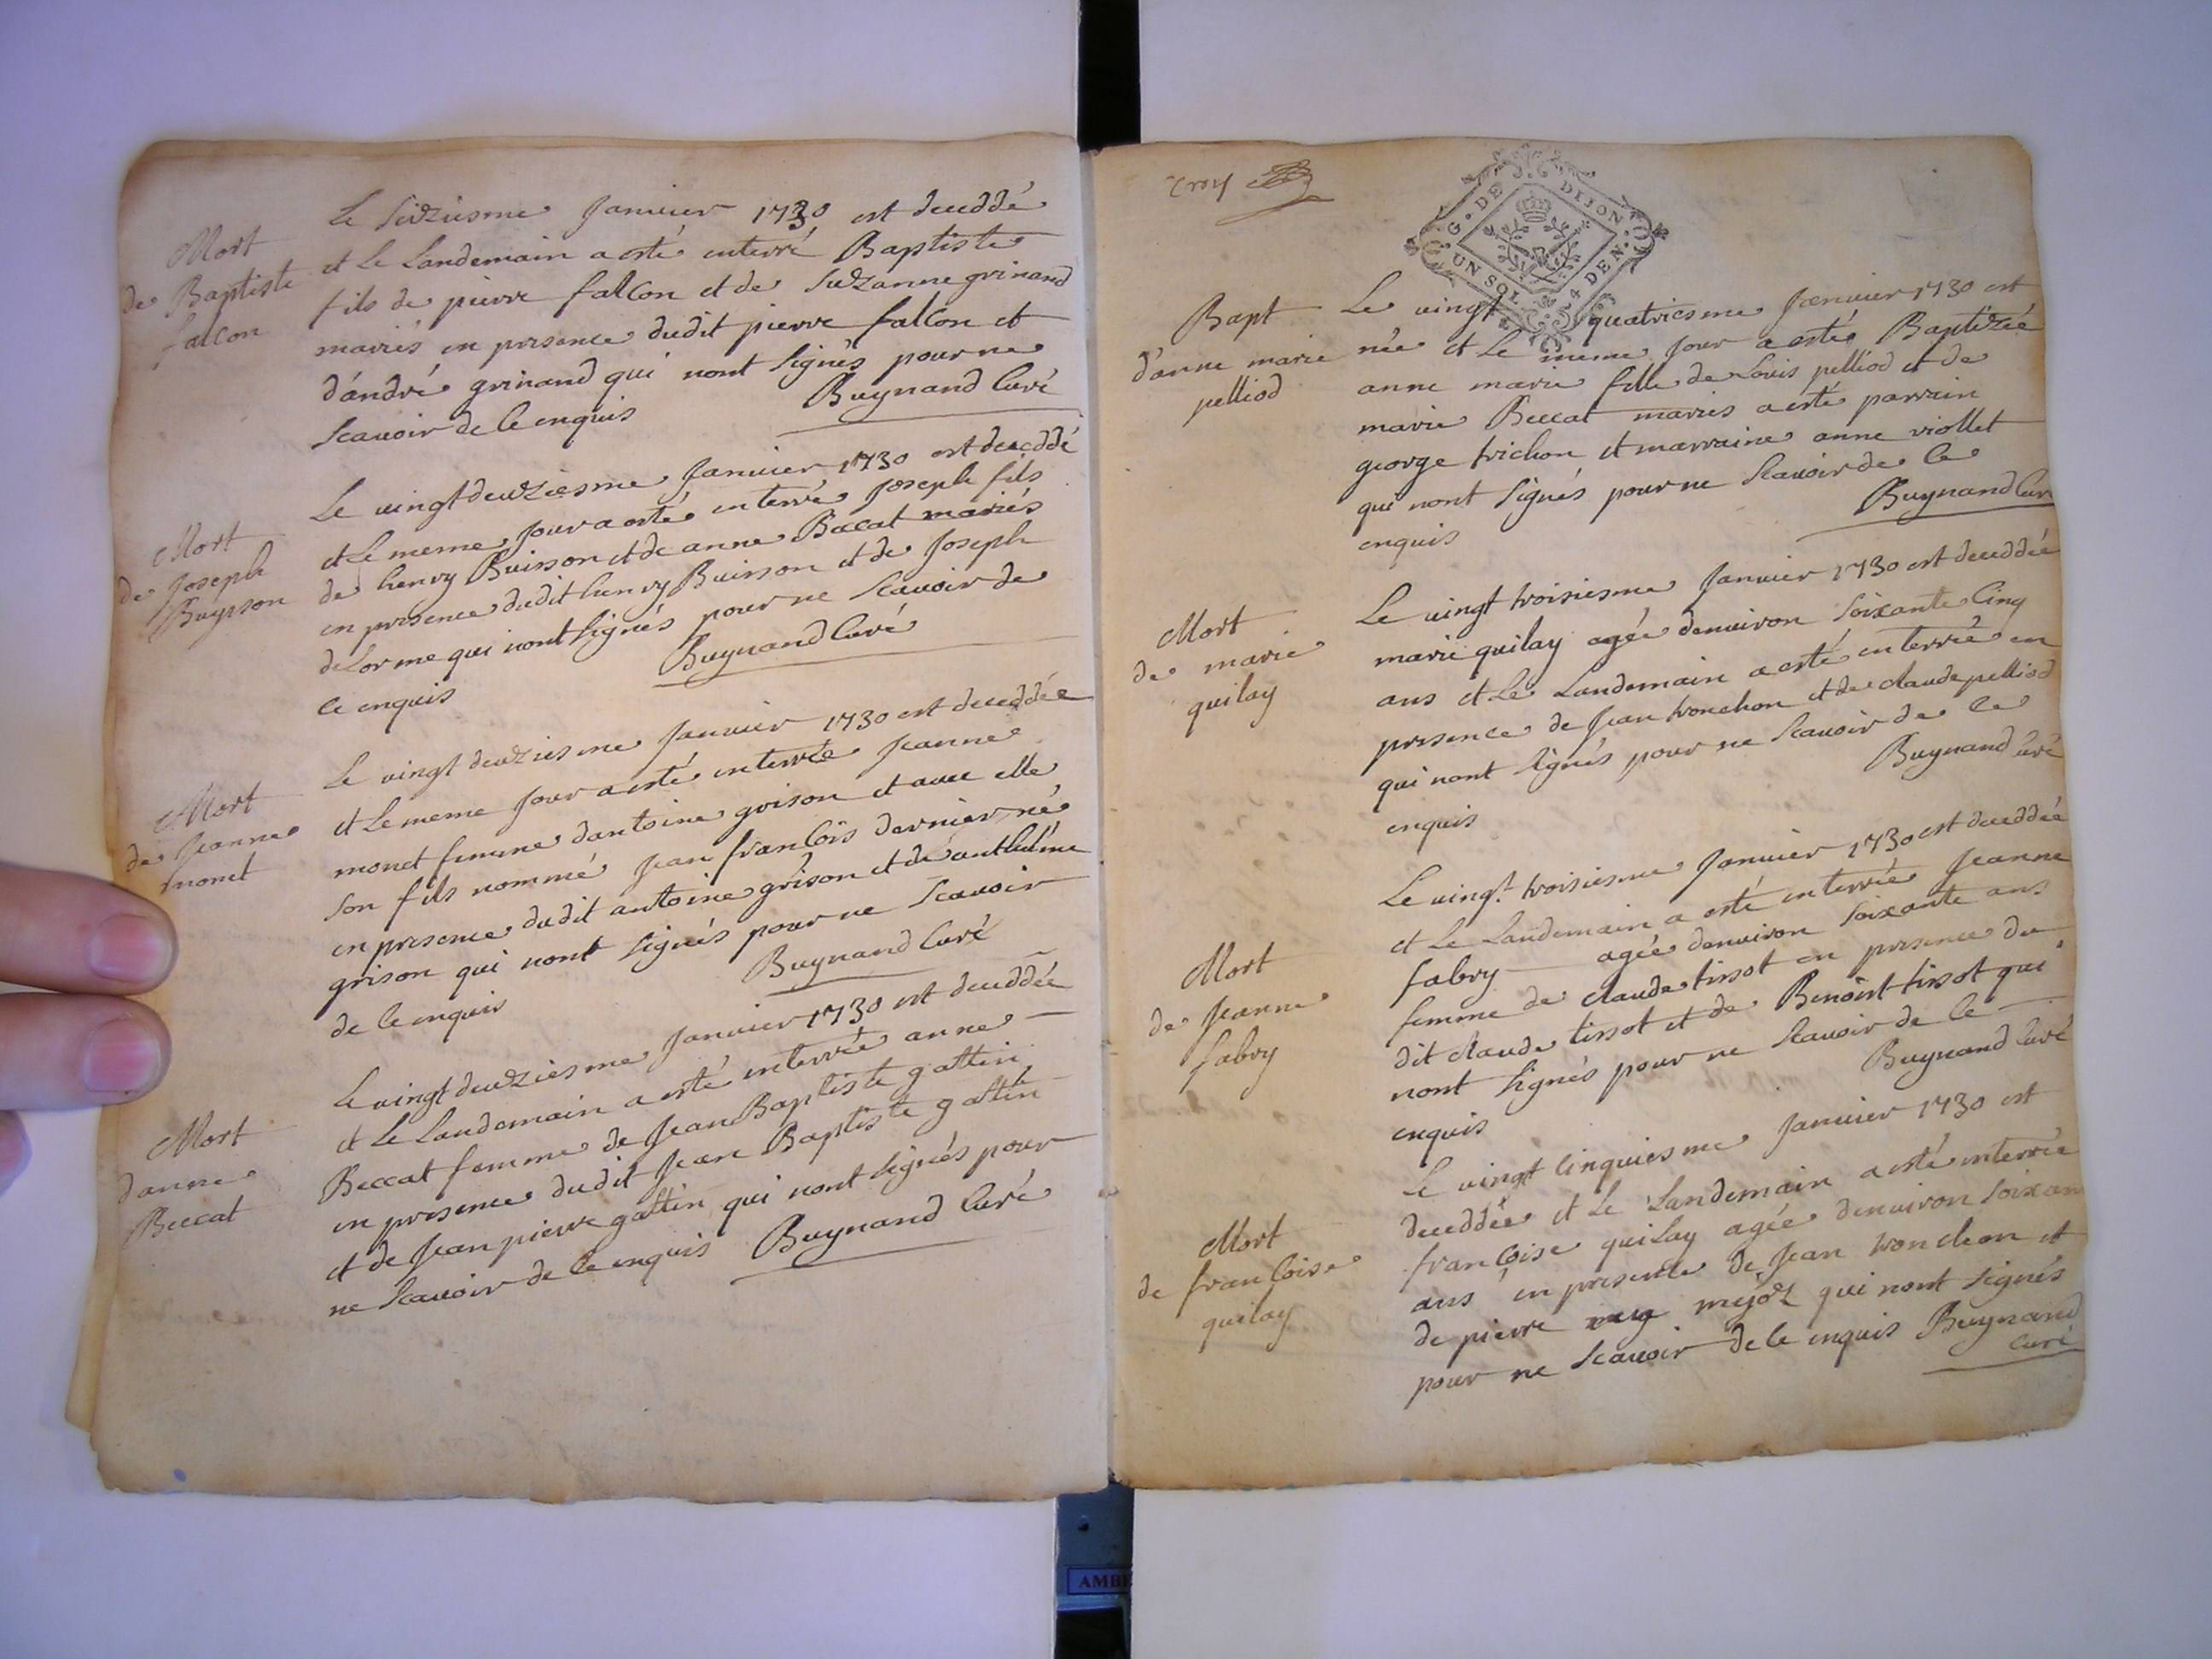 Mort
de Baptiste
falcon
Le seizieme Janvier 1730 est deceddé
et Le Landemain a esté enterré Baptiste
fils de pierre falcon et de Suzanne grinand
mariés en presence dudit pierre falcon et
d'andré grinand qui nont Signés pour ne
Scavoir de ce enquis Buynand Curé
Mort
de Joseph
Buysson
Le vingtdeuziesme Janvier 1730 est deceddé
et Le meme Jour a esté enterré Joseph fils
de henry Buisson et de anne Beccat mariés
en presence dudit henry Buisson et de Joseph
deLorme qui nont signés pour ne Scavoir de
ce enquis Buynand Curé
Mort
de Jeanne
monet
Le vingt deuziesme Janvier 1730 est deceddée
et Le meme Jour a esté enterrée Jeanne
monet femme dantoine grison et avec elle
son fils nommé Jean francois dernier né
en presence dudit antoine grison et de anthelme
grison qui nont signés pour ne Scavoir
de ce enquis Buynand Curé
Mort
danne
Beccat
Le vingtdeuziesme Janvier 1730 est deceddée
et Le Landemain a esté enterrée anne
Beccat femme de Jean Baptiste gattin
en presence dudit Jean Baptiste gattin
et de Jean pierre gattin qui nont signés pour
ne Scavoir de ce enquis Buynand Curé
troy
G. DE DIJON
UN SOL 4 DEN.
Bapt
d'anne marie
pelliod
Le vingt quatriesme Janvier 1730 est
née et Le meme Jour a estée Baptizée
anne marie fille de Louis pelliod et de
marie Beccat mariés a esté parrain
george trichon et marraine anne viollet
qui nont signés pour ne Scavoir de ce
enquis Buynand Cur
Mort
de marie
quilay
Le vingt troisiesme Janvier 1730 est deceddée
marie quilay agée denviron soixante cinq
ans et Le Landemain a esté enterrée en
presence de Jean tronchon et de claude pelliod
qui nont signés pour ne Scavoir de ce
enquis Buynand Curé
Mort
de Jeanne
fabry
Le vingt troisiesme Janvier 1730 est deceddée
et Le Landemain a esté enterrée Jeanne
fabry agée denviron soixante ans
femme de claude tissot en presence du
dit claude tissot et de Benoist tissot qui
nont signés pour ne Scavoir de ce
enquis Buynand Curé
Mort
de francoise
quilay
Le vingt cinquiesme Janvier 1730 est
deceddée et Le Landemain a esté enterrée
francoise quilay agée denviron soixan
ans en presence de Jean tronchon et
de pierre mejoz qui nont signés
pour ne Scavoir de ce enquis Buynand
Curé
AMB